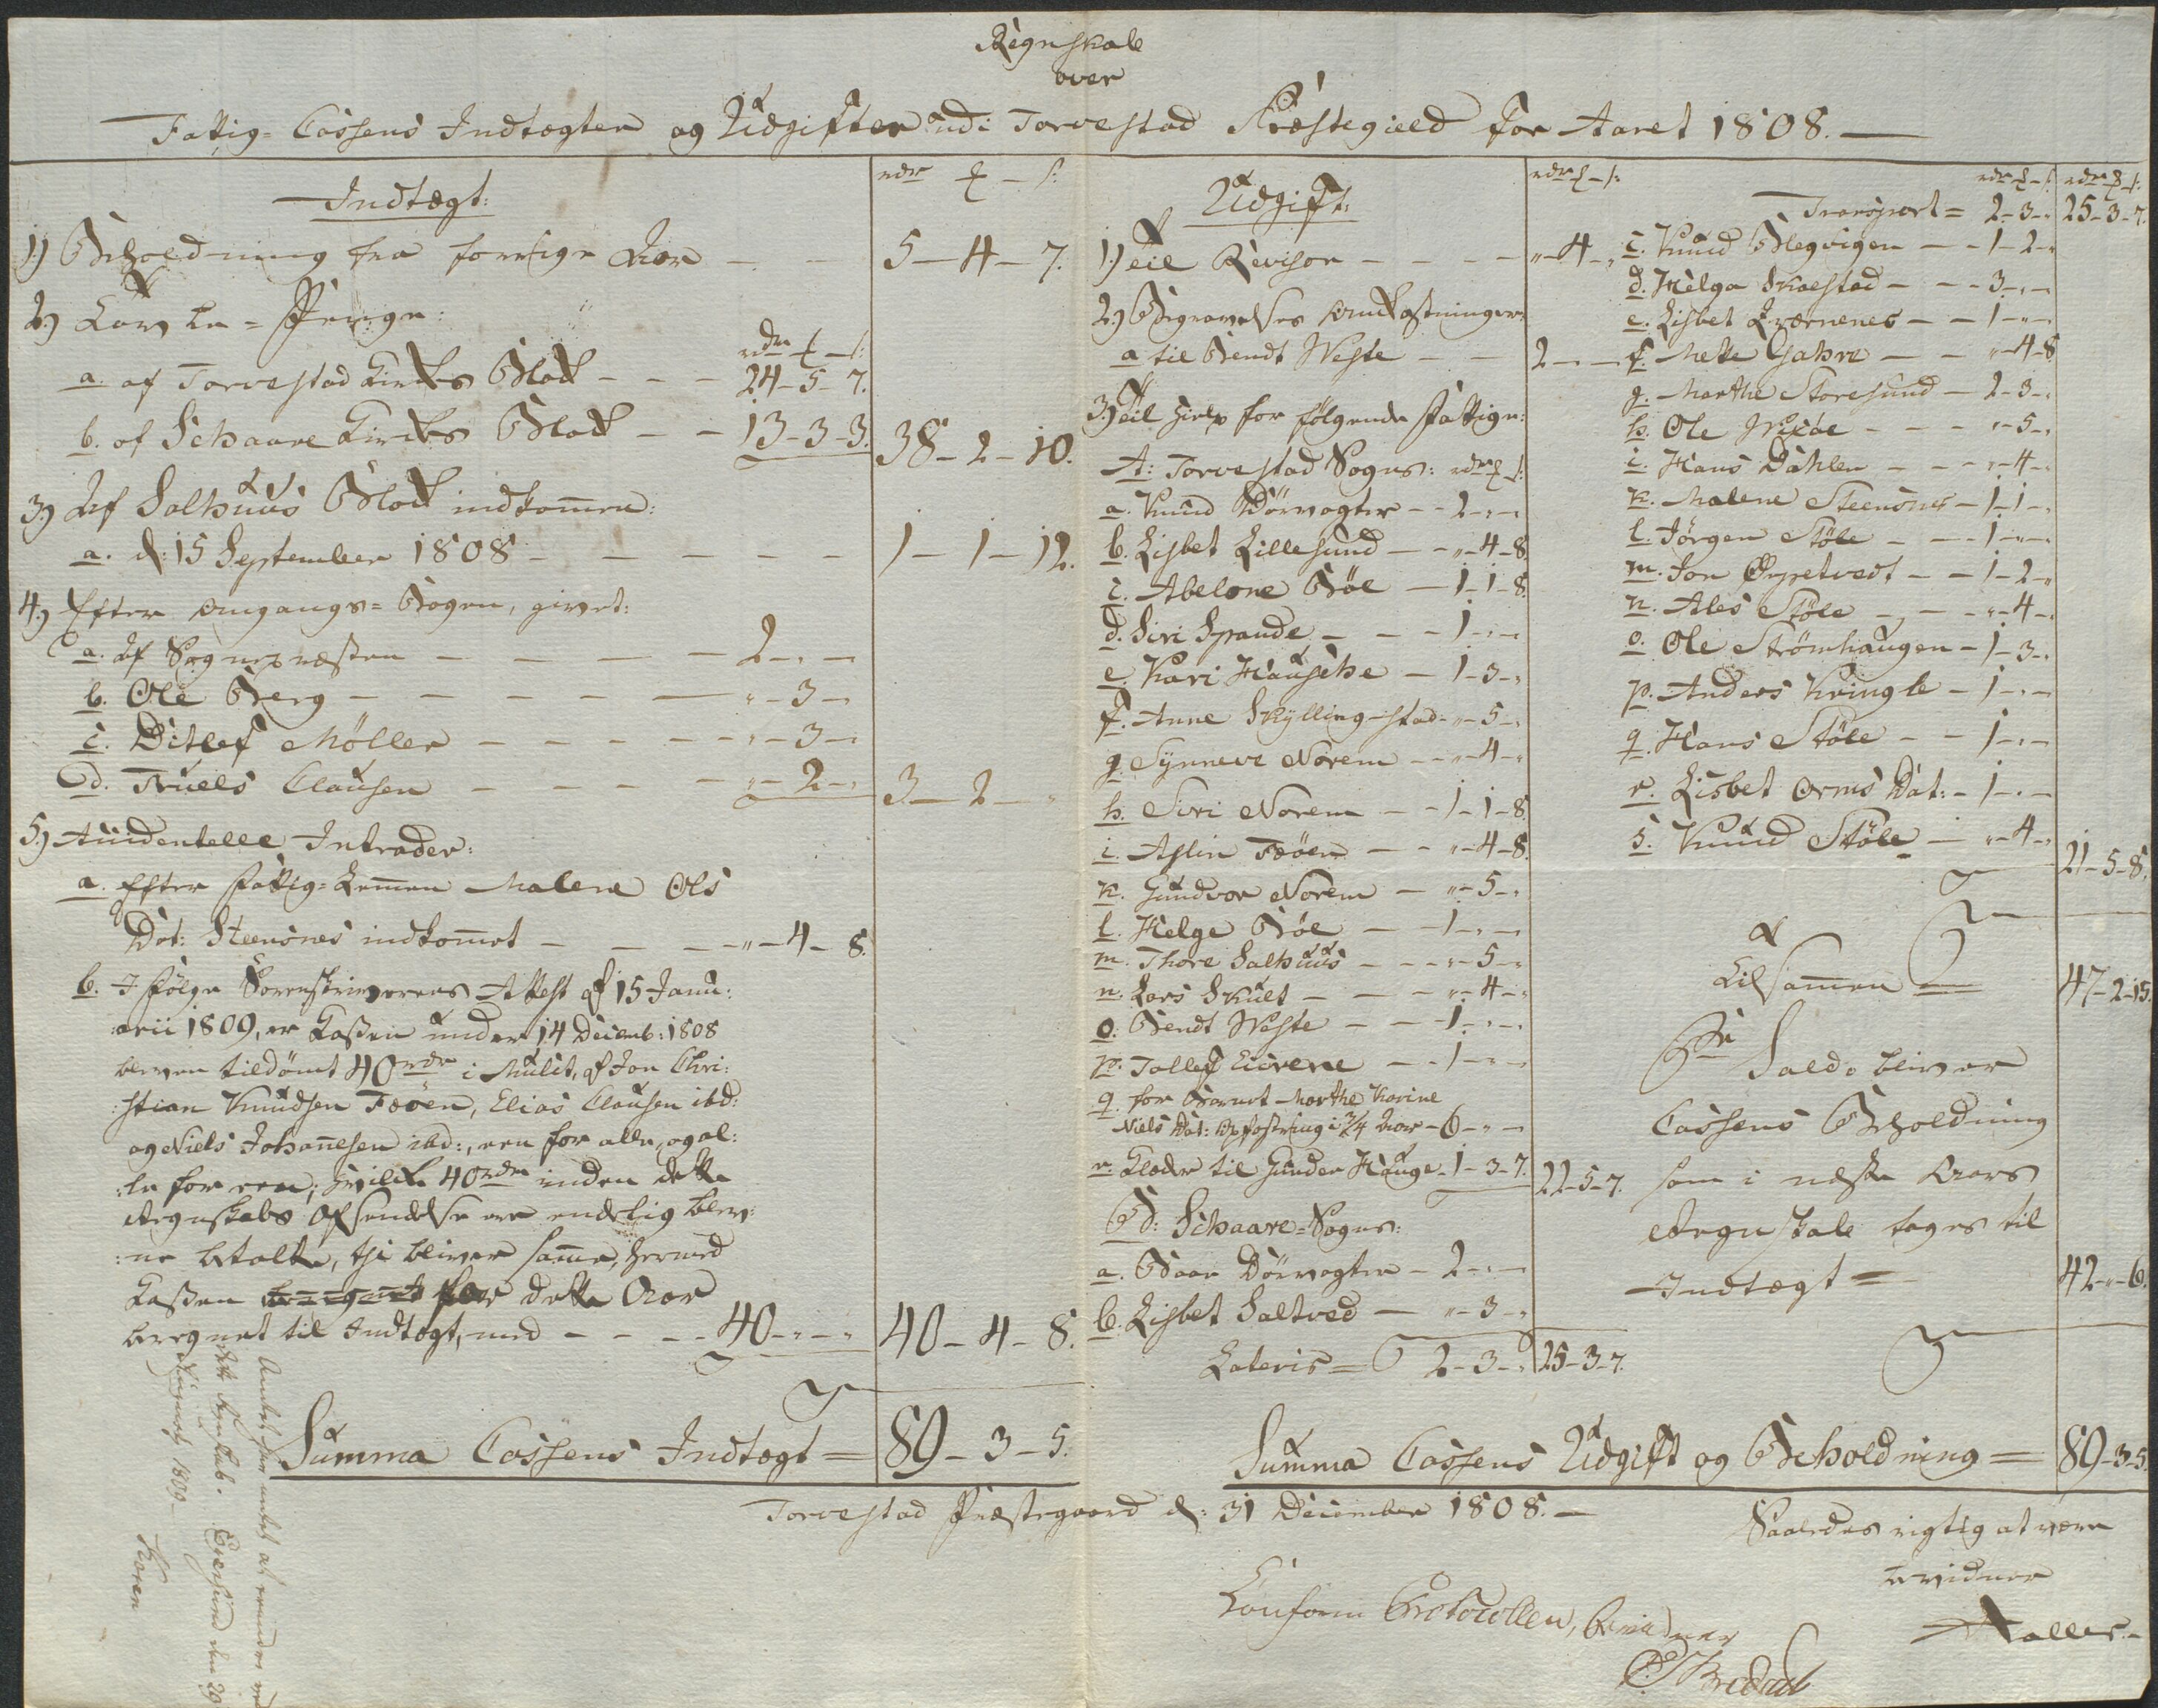 Regnskab
over
Fattig-Cassens Indtægter og Udgifter udi Torvestad Præstegield for Aaret 1808.
Indtægt:
rdr ₰ - s:
1) Beholdning fra forrige Aar - - 5 - 4 - 7.
2) Tavle-Penge:
rdr ₰ - s:
a. af Torvestad Kirkes Blok - - - 24 - 5 - 7.
b. af Schaare Kirkes Blok - - 13 - 3 - 3. 38 - 2 - 10.
3) Af Salhuus Blok indkommen:
a. d: 15 September 1808 - - - - - 1 - 1 - 12.
4) Efter Omgangs-Bogen, givet:
a. Af Sognepræsten - - - - 2 - " -
b. Ole Berg - - - - - - " - 3 - "
c. Ditlef Møller - - - - - " - 3 - "
d. Truels Clausen - - - - " - 2 - " 3 - 2 - "
5) Accidentelle Intrader:
a. Efter Fattig-Lemmen Malene Ols
Dat: Steensnes indkommet - - - - " - 4 - 8.
b. I følge Sorenskriverens Attest af 15 Janu:
:arii 1809, er Kassen under 14 Decemb: 1808
bleven tildømt 40 rdr i Mulct, af Jon Chri:
:stian Knudsen Føøen, Elias Clausen ibd:
og Niels Johannesen ibd:, een for alle, og al:
:le for een; hvilke 40 rdr inden dette
Regnskabs Afsendelse ere endelig blev:
:ne betalte, thi bliver samme, hermed
Kassen for dette Aar
beregnet til Indtægt, med - - - - 40 - " - " 40 - 4 - 8.
Summa Cassens Indtægt = 89 - 3 - 5.
Udgift:
rdr ₰ - s:
1) til Revisor - - - - " - 4 - "
2) Begravelses Omkostninger:
a til Bendt Weste - - 2 - " -
3) til Hielp for følgende Fattige:
A: Torvestad Sogns: rdr ₰ s:
a. Knud Dørvogter - - 2 - " -
b. Lisbet Lillesund - - " - 4 - 8
c. Abelone Bøe - 1 - 1 - 8.
d. Siri Spande - - - 1 - " -
e. Kari Hausche - 1 - 3 - "
f. Anne Skyllingstad - " - 5 - "
g. Synneve Norem - - " - 4 - "
h. Siri Norem - - 1 - 1 - 8.
i. Aslin Føøen - - " - 4 - 8.
k. Gundvor Norem - " - 5 - "
l. Helge Bøe - - 1 - " -
m. Thore Salhuus - - - " - 5 - "
n. Lars Skult - - - " - 4 - "
o. Bendt Weste - - 1 - " -
p. Tollef - - 1 - " -
q. for Barnet Marthe Karine
Niels Dat: Opfostring i 3/4 Aar - 6 - " -
r. Klæder til Gunder Hauge - 1 - 3 - 7. 22 - 5 - 7.
B: Schaare-Sogns:
a. Baar Dørvogter - 2 - " -
b. Lisbet Saltved - " - 3 - "
Lateris = 2 - 3 - " 25 - 3 - 7.
rdr ₰ - s: rdr ₰ s:
Transport = 2 - 3 - " 25 - 3 - 7.
c. Knud Blegvigen - - 1 - 2 - "
d. Helga Skaestad - - - 3 - " -
e. Lisbet Qværnenes - - 1 - " -
f. Mette Gahre - - " - 4 - 8
g. Marthe Storesund - 2 - 3 - "
h. Ole Nixøe - - - " - 5 - "
i. Hans Dahlen - - - " - 4 - "
k. Malene Steensnes - 1 - 1 - "
l. Jørgen Støle - - - 1 - " -
m. Jon Øypetvedt - - 1 - 2 - "
n. Ales Støle - - - " - 4 - "
o. Ole Strømhaugen - 1 - 3 - "
p. Anders Kringle - 1 - " -
q. Hans Støle - - 1 - " -
r. Lisbet Orms Dat: - 1 - " -
s. Knud Støle - " - 4 - " 21 - 5 - 8.
Tilsammen 47 - 2 - 15.
Pr Saldo bliver
Cassens Beholdning
som i næste Aars
Regnskab tages til
Indtægt = 42 - " - 6.
Summa Cassens Udgift og Beholdning = 89 - 3 - 5.
Torvestad Præstegaard d: 31 December 1808.
Saaledes rigtig at være
bevidner
Aaller.
Conform Protocollen, bevidner
Bredal
Amtet har intet at erindre ved
dette Regnskab. Egersund den 29
August 1809
Koren